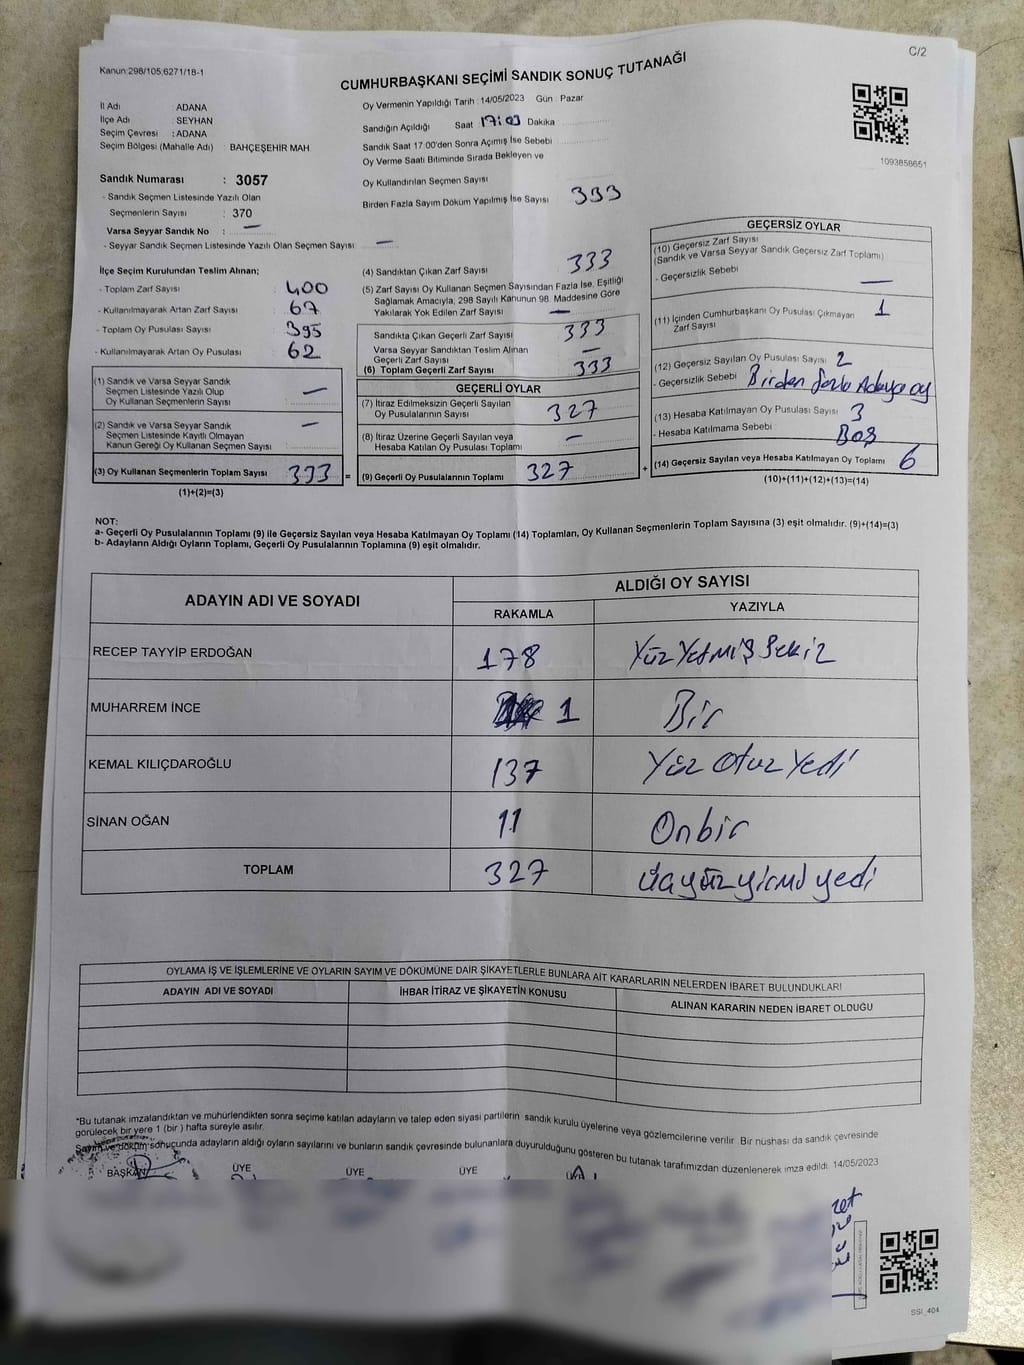 C/2
Kanun:298/105,6271/18-1
CUMHURBAŞKANI SEÇİMİ SANDIK SONUÇ TUTANAĞI
İl Adı : ADANA
İlçe Adı : SEYHAN
Seçim Çevresi : ADANA
Seçim Bölgesi (Mahalle Adı) : BAHÇEŞEHİR MAH
Oy Vermenin Yapıldığı Tarih : 14/05/2023 Gün : Pazar
Sandığın Açıldığı Saat 17:03 Dakika
Sandık Saat 17:00'den Sonra Açımış İse Sebebi
Oy Verme Saati Bitiminde Sırada Bekleyen ve
Oy Kullandırılan Seçmen Sayısı
Birden Fazla Sayım Döküm Yapılmış İse Sayısı 333
1093858651
Sandık Numarası : 3057
- Sandık Seçmen Listesinde Yazılı Olan
Seçmenlerin Sayısı : 370
Varsa Seyyar Sandık No : —
- Seyyar Sandık Seçmen Listesinde Yazılı Olan Seçmen Sayısı : —
İlçe Seçim Kurulundan Teslim Alınan;
- Toplam Zarf Sayısı : 400
- Kullanılmayarak Artan Zarf Sayısı : 67
- Toplam Oy Pusulası Sayısı : 395
- Kullanılmayarak Artan Oy Pusulası : 62
(1) Sandık ve Varsa Seyyar Sandık
Seçmen Listesinde Yazılı Olup
Oy Kullanan Seçmenlerin Sayısı : —
(2) Sandık ve Varsa Seyyar Sandık
Seçmen Listesinde Kayıtlı Olmayan
Kanun Gereği Oy Kullanan Seçmen Sayısı : —
(3) Oy Kullanan Seçmenlerin Toplam Sayısı : 333 =
(1)+(2)=(3)
(4) Sandıktan Çıkan Zarf Sayısı 333
(5) Zarf Sayısı Oy Kullanan Seçmen Sayısından Fazla İse, Eşitliği
Sağlamak Amacıyla, 298 Sayılı Kanunun 98. Maddesine Göre
Yakılarak Yok Edilen Zarf Sayısı —
Sandıkta Çıkan Geçerli Zarf Sayısı 333
Varsa Seyyar Sandıktan Teslim Alınan
Geçerli Zarf Sayısı —
(6) Toplam Geçerli Zarf Sayısı 333
GEÇERLİ OYLAR
(7) İtiraz Edilmeksizin Geçerli Sayılan
Oy Pusulalarının Sayısı 327
(8) İtiraz Üzerine Geçerli Sayılan veya
Hesaba Katılan Oy Pusulaları Toplamı —
(9) Geçerli Oy Pusulalarının Toplamı 327 +
GEÇERSİZ OYLAR
(10) Geçersiz Zarf Sayısı
(Sandık ve Varsa Seyyar Sandık Geçersiz Zarf Toplamı)
- Geçersizlik Sebebi —
(11) İçinden Cumhurbaşkanı Oy Pusulası Çıkmayan
Zarf Sayısı 1
(12) Geçersiz Sayılan Oy Pusulası Sayısı 2
- Geçersizlik Sebebi Birden fazla Adaya oy
(13) Hesaba Katılmayan Oy Pusulası Sayısı 3
- Hesaba Katılmama Sebebi Boş
(14) Geçersiz Sayılan veya Hesaba Katılmayan Oy Toplamı 6
(10)+(11)+(12)+(13)=(14)
NOT:
a- Geçerli Oy Pusulalarının Toplamı (9) ile Geçersiz Sayılan veya Hesaba Katılmayan Oy Toplamı (14) Toplamları, Oy Kullanan Seçmenlerin Toplam Sayısına (3) eşit olmalıdır. (9)+(14)=(3)
b- Adayların Aldığı Oyların Toplamı, Geçerli Oy Pusulalarının Toplamına (9) eşit olmalıdır.
ADAYIN ADI VE SOYADI
ALDIĞI OY SAYISI
RAKAMLA YAZIYLA
RECEP TAYYİP ERDOĞAN 178 Yüz Yetmiş Sekiz
MUHARREM İNCE 1 Bir
KEMAL KILIÇDAROĞLU 137 Yüz Otuz Yedi
SİNAN OĞAN 11 Onbir
TOPLAM 327 üçyüzyirmi yedi
OYLAMA İŞ VE İŞLEMLERİNE VE OYLARIN SAYIM VE DÖKÜMÜNE DAİR ŞİKAYETLERLE BUNLARA AİT KARARLARIN NELERDEN İBARET BULUNDUKLARI
ADAYIN ADI VE SOYADI İHBAR İTİRAZ VE ŞİKAYETİN KONUSU ALINAN KARARIN NEDEN İBARET OLDUĞU
*Bu tutanak imzalandıktan ve mühürlendikten sonra seçime katılan adayların ve talep eden siyasi partilerin sandık kurulu üyelerine veya gözlemcilerine verilir. Bir nüshası da sandık çevresinde
görülecek bir yere 1 (bir ) hafta süreyle asılır.
Sayım ve döküm sonucunda adayların aldığı oyların sayılarını ve bunların sandık çevresinde bulunanlara duyurulduğunu gösteren bu tutanak tarafımızdan düzenlenerek imza edildi. 14/05/2023
BAŞKAN ÜYE ÜYE ÜYE
SSI_404